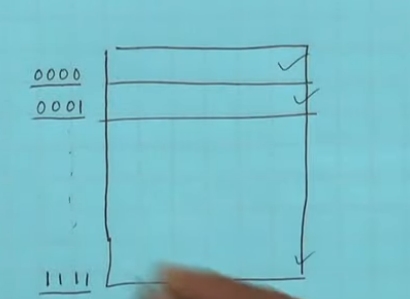 0000
0001
1111